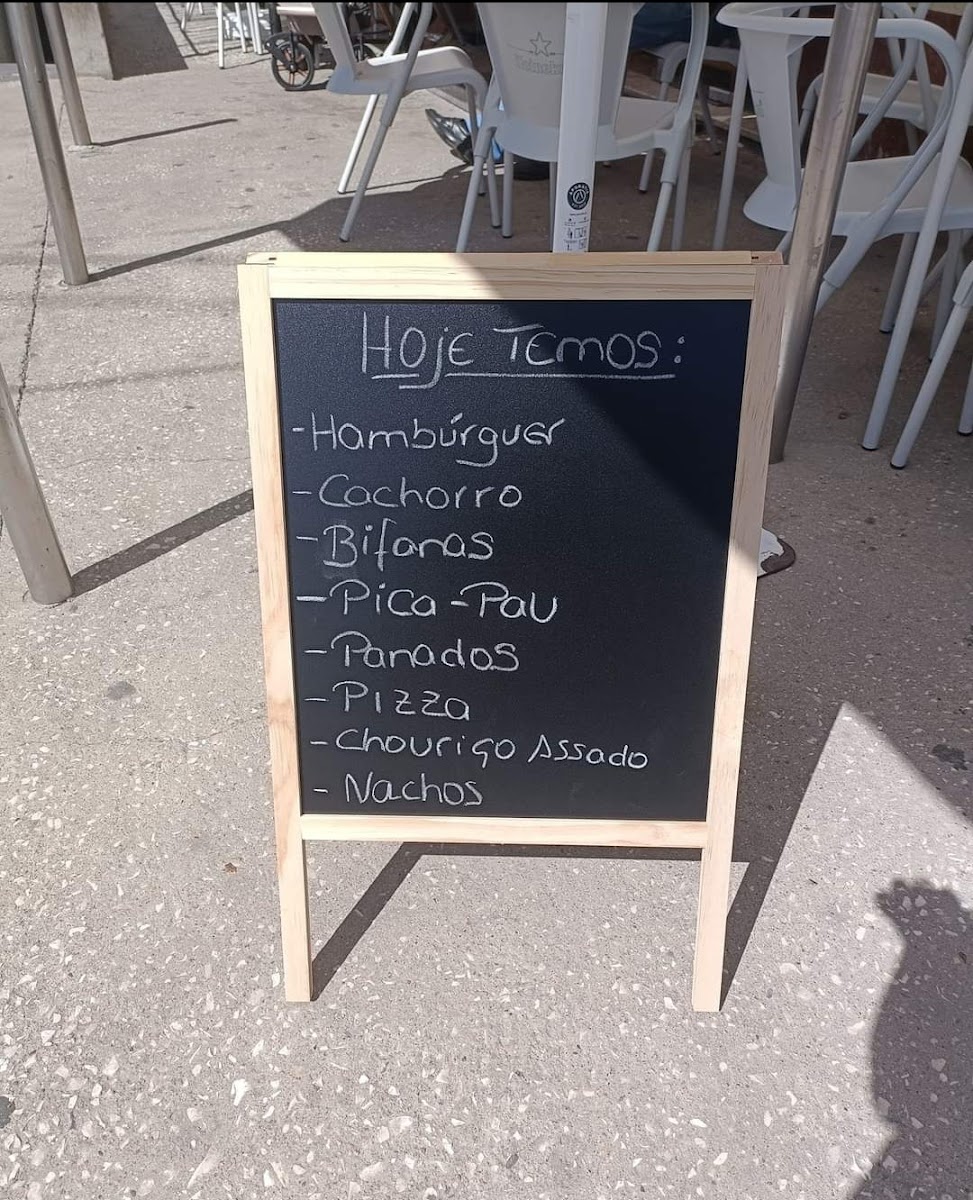 Heineken
HOJE TEMOS:
-Hambúrguer
-Cachorro
-Bifanas
-Pica-Pau
-Panados
-Pizza
-Chouriço Assado
-Nachos